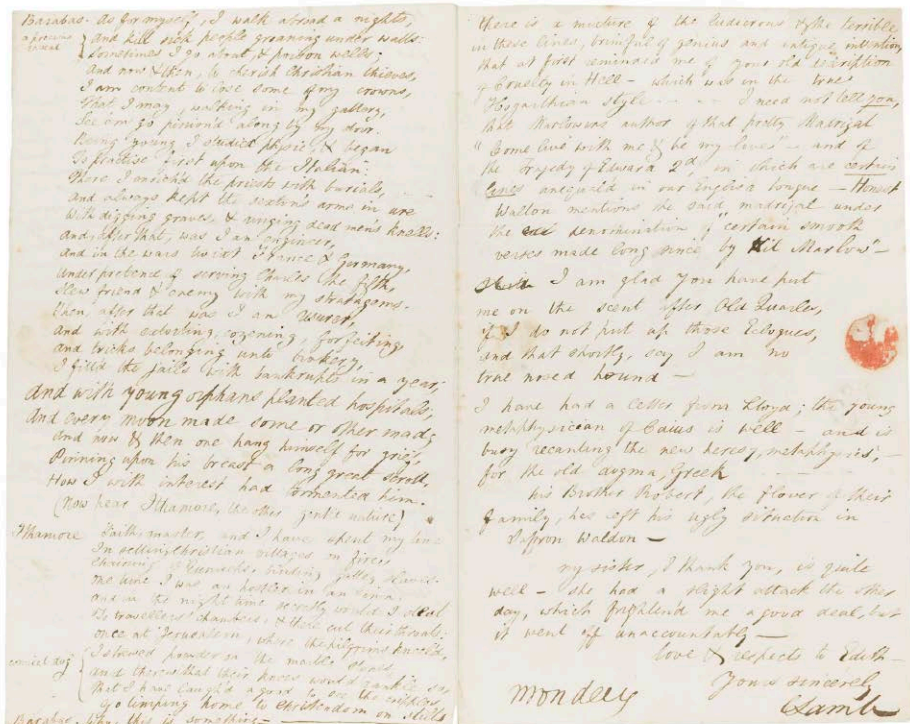 Barabas. As for myself, I walk abroad a nights,
a precious
and kill sick people groaning under walls:
Sometimes I go about & poison wells;
And now & then, to cherish Christian thieves,
I am content to lose some of my crowns,
That I may, walking in my gallery,
See em go pinion'd along by my door.
Being young I studied physic, & began
To practise first upon the Italian:
There I enrich'd the priests with burials,
And always kept the sexton's arms in ure
With digging graves, & ringing dead mens knells:
And after that, was I an engineer,
And in the wars twixt France & Germany,
Under pretence of serving Charles the fifth,
Slew friend & enemy with my stratagems.
Then after that was I an usurer,
and with extorting, cozening, forfeiting,
and tricks belonging unto brokery,
I fill'd the jails with bankrupts in a year,
and with young orphans planted hospitals,
And every moon made some or other mad;
And now & then one hang himself for grief,
Pinning upon his breast a long great scroll,
How I with interest had tormented him.
(Now hear Ithamore, the other gentle nature)
Ithamore Faith, master, and I have spent my time
In setting christian villages on fire,
chaining of Eunuchs, binding galley slaves.
One time I was an hostler in an inn,
and in the night time secretly would I steal
To travellers' chambers, & there cut their throats:
Once at Jerusalem, where the pilgrims kneel'd,
I strewed powder on the marble stones,
and therewithal their knees would rankle so,
That I have laugh'd a good to see the cripples
Go limping home to Christendom on stilts
Barabas. Why, this is something—
there is a mixture of the ludicrous & the terrible
in these lines, brimful of genius and antique invention,
that at first reminded me of your old description
of Cruelty in Hell — which was in the true
Hogarthian style — — I need not tell you,
that Marlow was author of that pretty Madrigal
"Come live with me & be my love" — and of
the Tragedy of Edward 2d, in which are certain
lines unequal'd in our English tongue — Honest
Walton mentions the said madrigal under
the denomination of "certain smooth
verses made long since by Kit Marlow" —
I am glad you have put
me on the scent after Old Quarles,
if I do not put up those Eclogues,
and that shortly, say I am no
true nosed hound —
I have had a Letter from Lloyd; the young
metaphysician of Caius is well — and is
busy recanting the new heresy, metaphysics, —
for the old dogma, Greek
his Brother Robert, the flower of their
family, has left his ugly situation in
Saffron Waldon —
my sister, I thank you, is quite
well — she had a slight attack the other
day, which frightend me a good deal, but
it went off unaccountably —
love & respects to Edith —
Yours sincerely
Monday
C Lamb